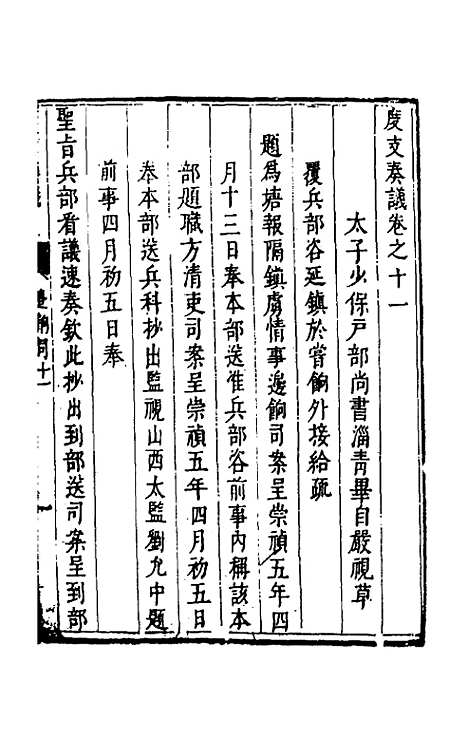 度支奏議卷之十一
太子少保戶部尚書淄青畢自嚴視草
覆兵部咨延鎮於嘗餉外接給疏
題爲塘報隔鎮虜情事邊餉司案呈崇禎五年四
月十三日奉本部送准兵部咨前事內稱該本
部題職方清吏司案呈崇禎五年四月初五日
奉本部送兵科抄出監視山西太監劉允中題
前事四月初五日奉
聖旨兵部看議速奏欽此抄出到部送司案呈到部
邊餉司十一